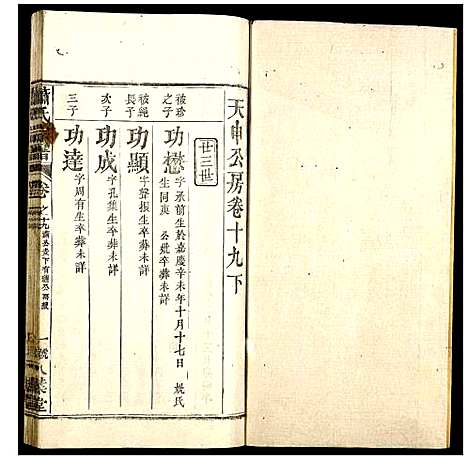 天申公房卷十九下
廿三世
被珍之子
功懋
字承前生於嘉慶辛未年十月十七日 姚氏
生同庚 公妣卒葬未詳
被純長子
功顯
字聲振生卒葬未詳
次子
功成
字孔集生卒葬未詳
三子
功達
字周有生卒葬未詳
蕭氏
卷之十九